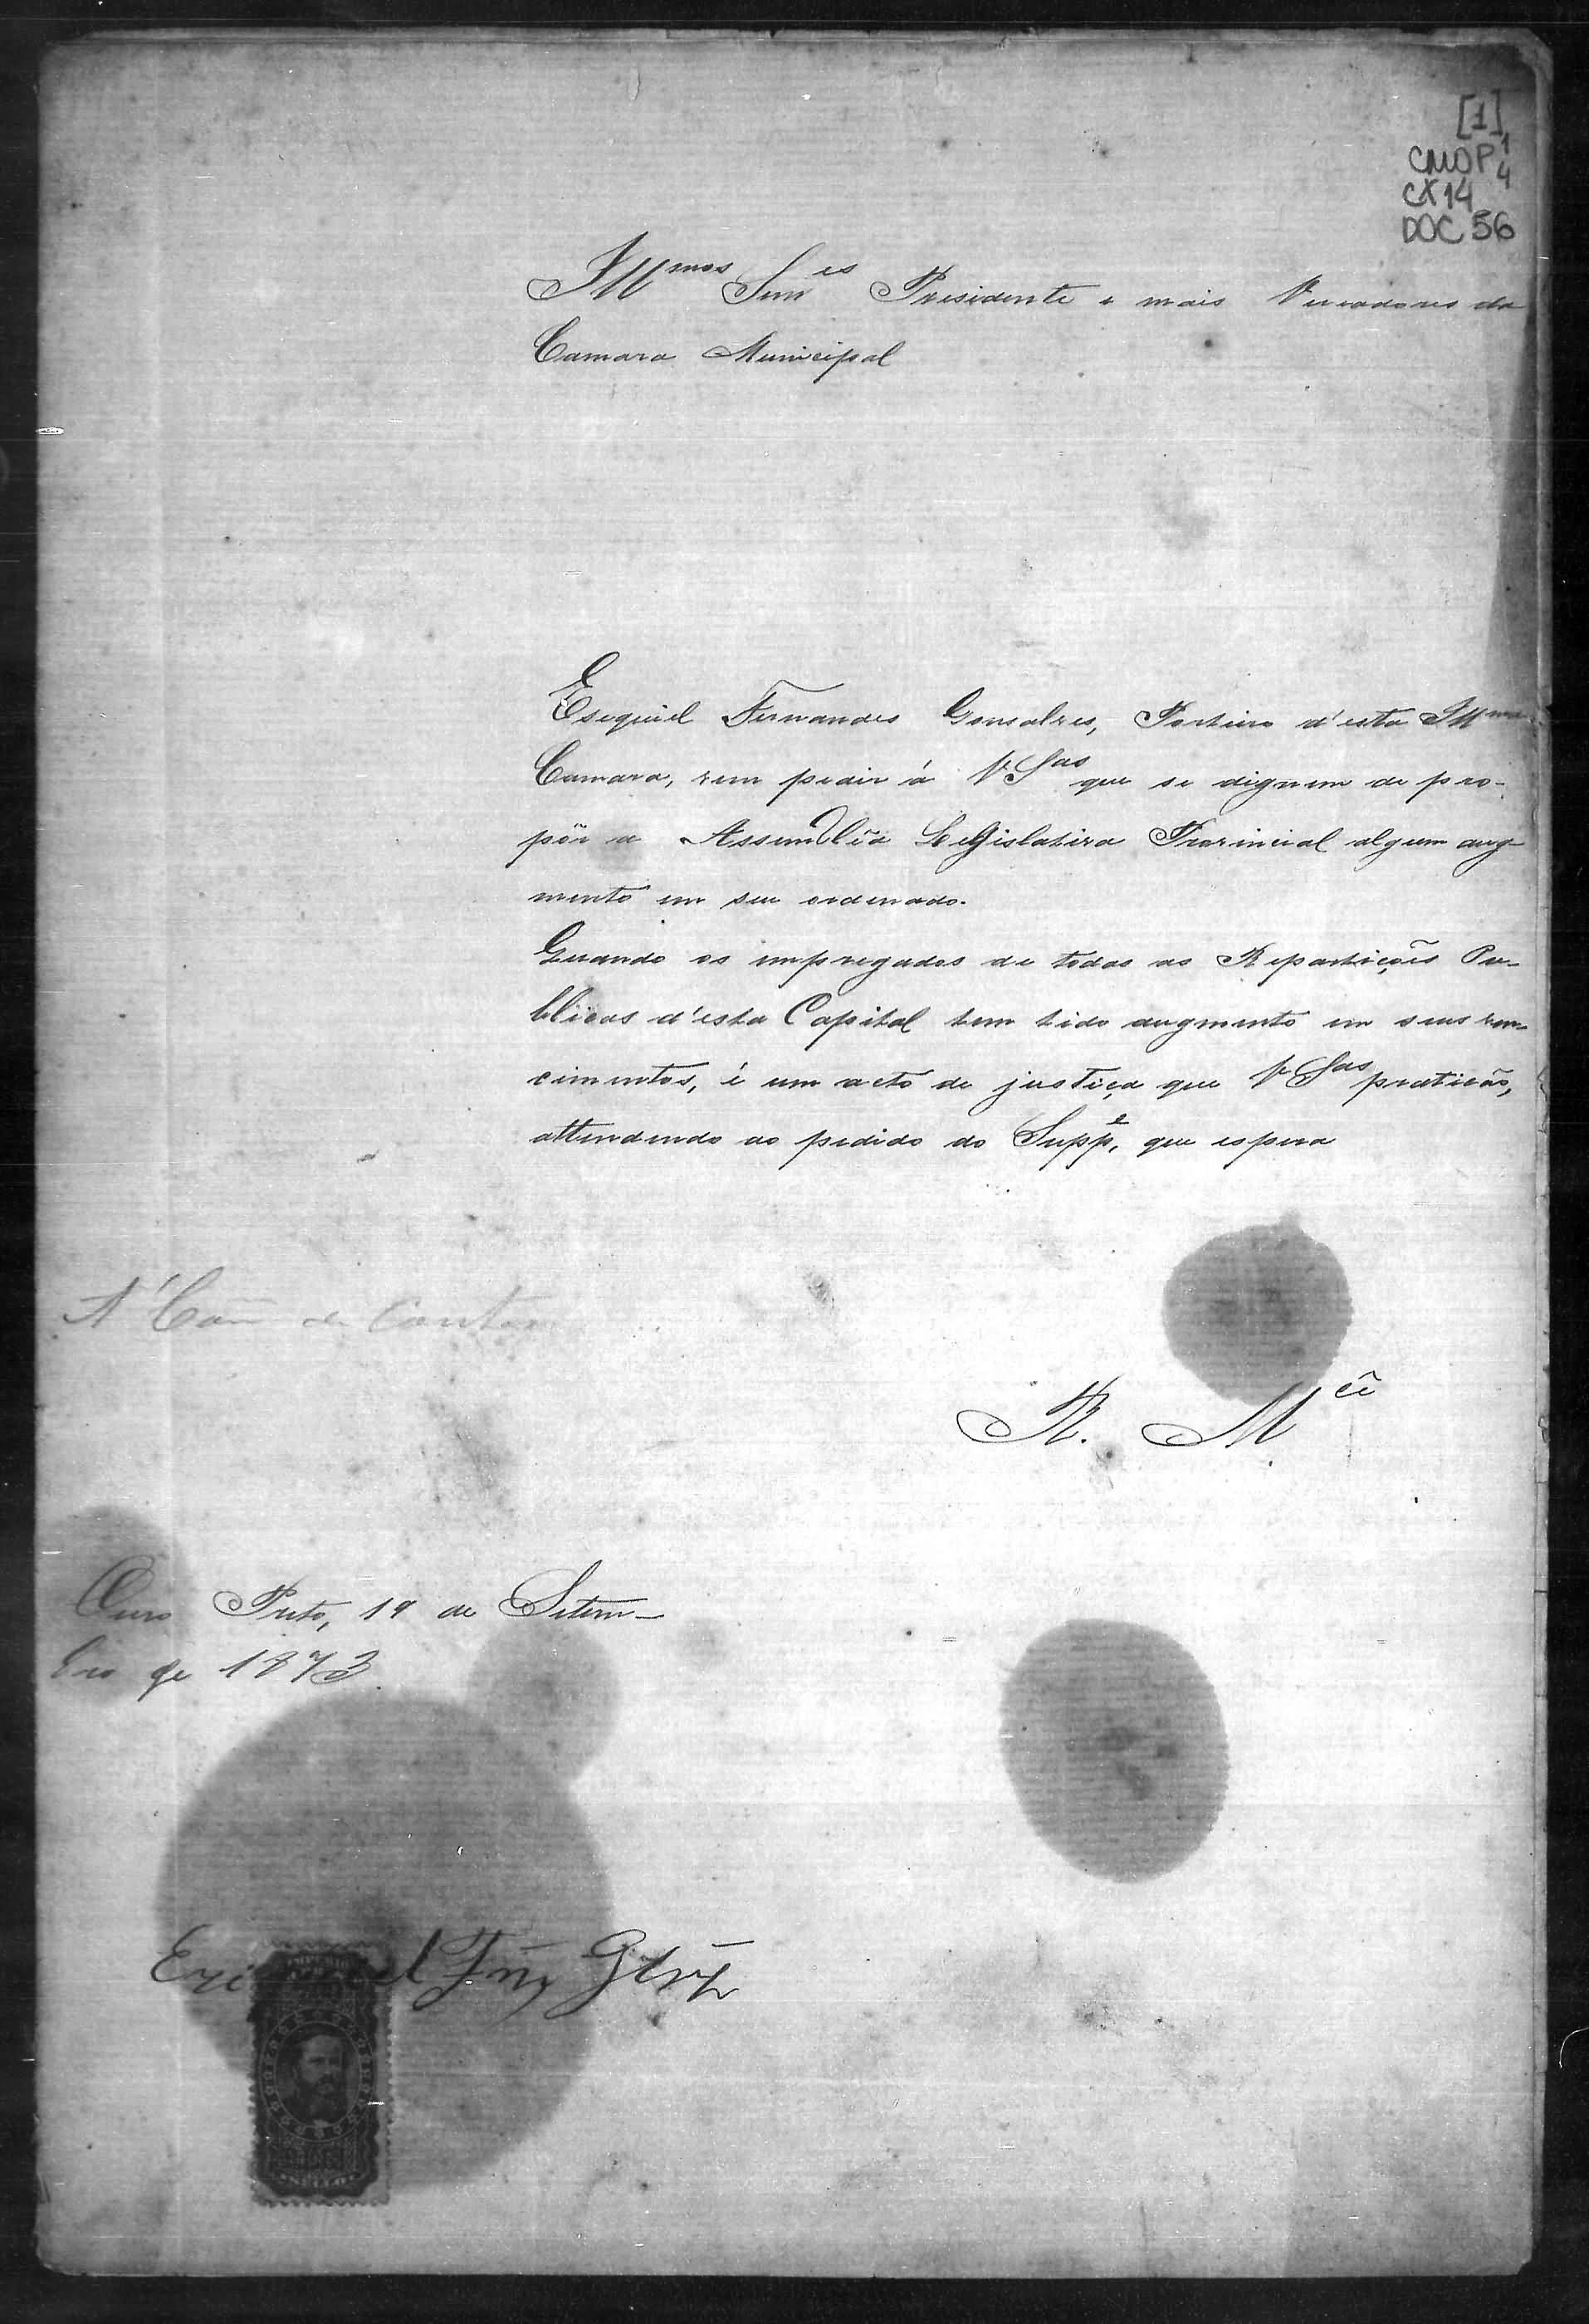 [1]
CMOP 1
4
CX 14
DOC 56
Illmos Senres Presidente e mais Vereadores da
Camara Municipal
Esequiel Fernandes Gonsalves, Porteiro d'esta Illma
Camara, vem pedir á V Sas que se dignem de pro-
pôr a Assembléa Legislativa Provincial algum aug-
mento em seu ordenado.
Quando os empregados de todas as Repartições Pu-
blicas d'esta Capital tem tido augmento em seus ven-
cimentos, é um acto de justiça que V Sas praticão,
attendendo ao pedido do Suppe, que espera
A' Com de Contas
R. Mcê
Ouro Preto, 19 de Setem-
bro de 1873.
Ezequiel Frz Glvz
IMPERIO
SELLO